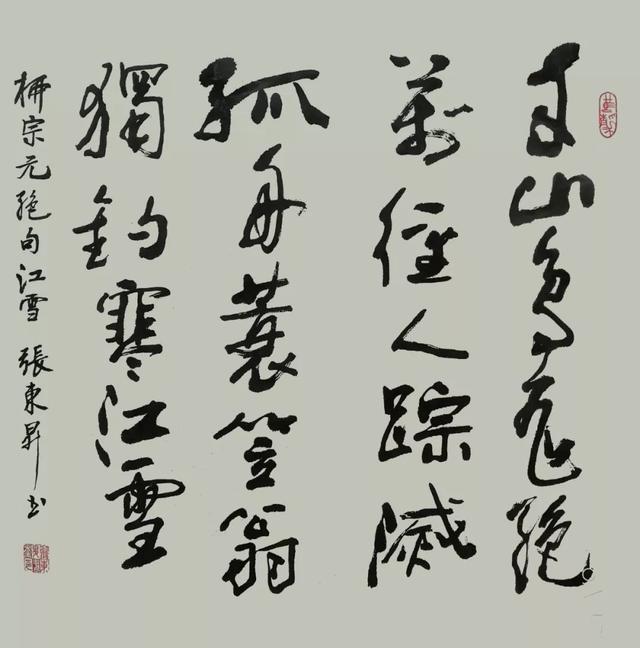 千山鸟飛絶
萬徑人踪滅
孤舟蓑笠翁
獨釣寒江雪
柳宗元絶句江雪 張東昇书